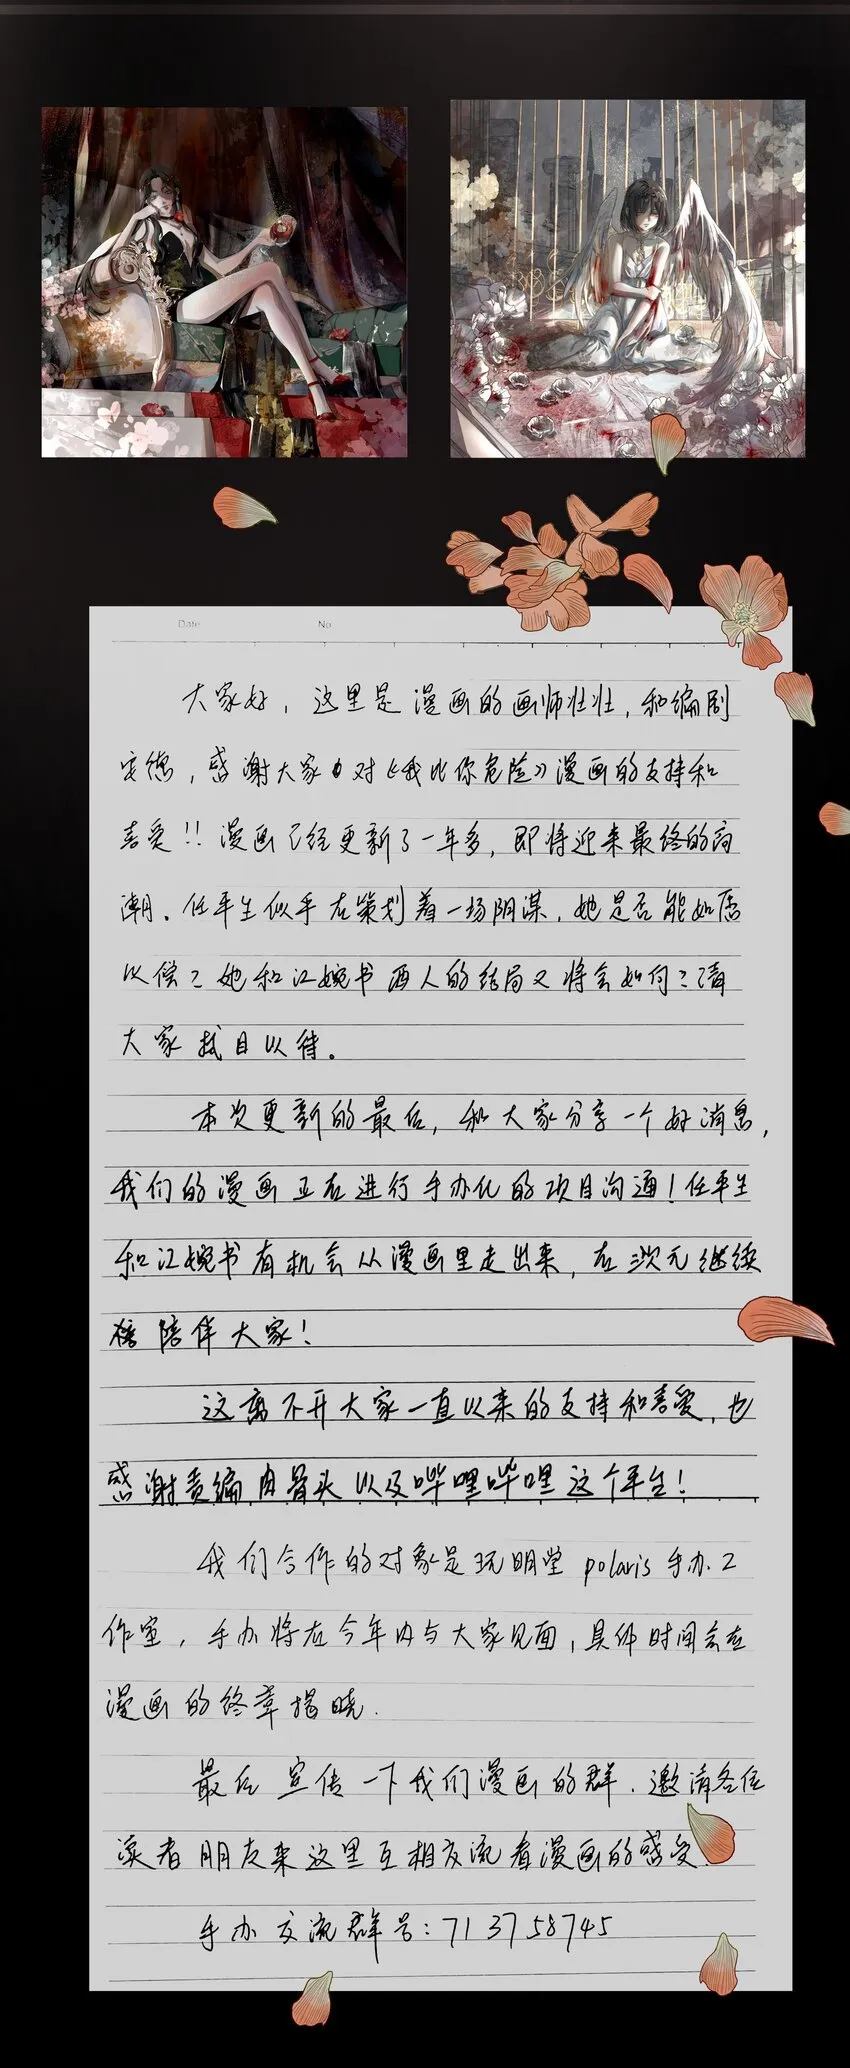 Date No
大家好，这里是漫画的画师壮壮，和编剧
安德，感谢大家对《我比你危险》漫画的支持和
喜爱!!漫画已经更新了一年多，即将迎来最终的高
潮。任平生似乎在策划着一场阴谋，她是否能如愿
以偿？她和江婉书两人的结局又将会如何？请
大家拭目以待。
本次更新的最后，和大家分享一个好消息，
我们的漫画正在进行手办化的项目沟通！任平生
和江婉书有机会从漫画里走出来，在三次元继续
陪伴大家！
这离不开大家一直以来的支持和喜爱，也
感谢责编肉骨头以及哔哩哔哩这个平台！
我们合作的对象是玩明堂 polaris 手办工
作室，手办将在今年内与大家见面，具体时间会在
漫画的终章揭晓.
最后 宣传一下我们漫画的群.邀请各位
读者朋友来这里互相交流看漫画的感受.
手办交流群号：713758745